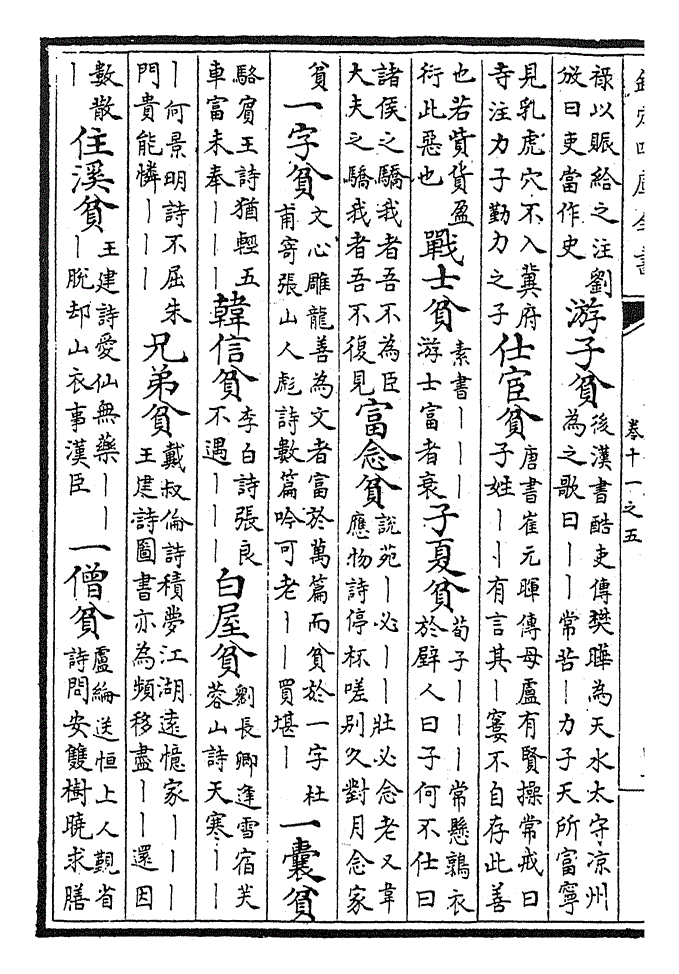 欽定四庫全書
卷十一之五
祿以賑給之注劉
攽曰吏當作史
游子貧
後漢書酷吏傳樊曄為天水太守凉州
為之歌曰｜｜常苦｜力子天所富寧
見乳虎穴不入冀府
寺注力子勤力之子
仕宦貧
唐書崔元暉傳母盧有賢操常戒曰
子姓｜｜有言其｜窶不自存此善
也若貲貨盈
衍此惡也
戰士貧
素書｜｜｜
游士富者衰
子夏貧
荀子｜｜｜常懸鶉衣
於壁人曰子何不仕曰
諸侯之驕我者吾不為臣
大夫之驕我者吾不復見
富念貧
説苑｜必｜｜壯必念老又韋
應物詩停杯嗟别久對月念家
貧
一字貧
文心雕龍善為文者富於萬篇而貧於一字杜
甫寄張山人彪詩數篇吟可老｜｜買堪｜
一囊貧
駱賓王詩猶輕五
車富未奉｜｜｜
韓信貧
李白詩張良
不遇｜｜｜
白屋貧
劉長卿逢雪宿芙
蓉山詩天寒｜｜
｜何景明詩不屈朱
門貴能憐｜｜｜
兄弟貧
戴叔倫詩積夢江湖遠憶家｜｜｜
王建詩圖書亦為頻移盡｜｜還因
數散
｜
住溪貧
王建詩愛仙無藥｜｜
｜脱却山衣事漢臣
一僧貧
盧綸送恒上人覲省
詩問安雙樹曉求膳